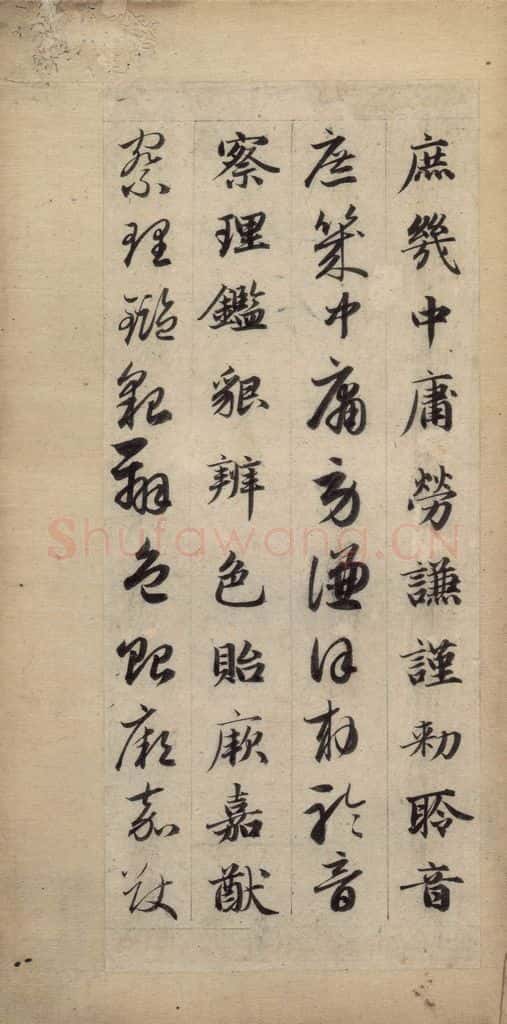 庶幾中庸勞謙謹勅聆音
庶幾中庸勞謙謹勅聆音
察理鑑貌辨色貽厥嘉猷
察理鑑貌辨色貽厥嘉猷
Shufawang.CN